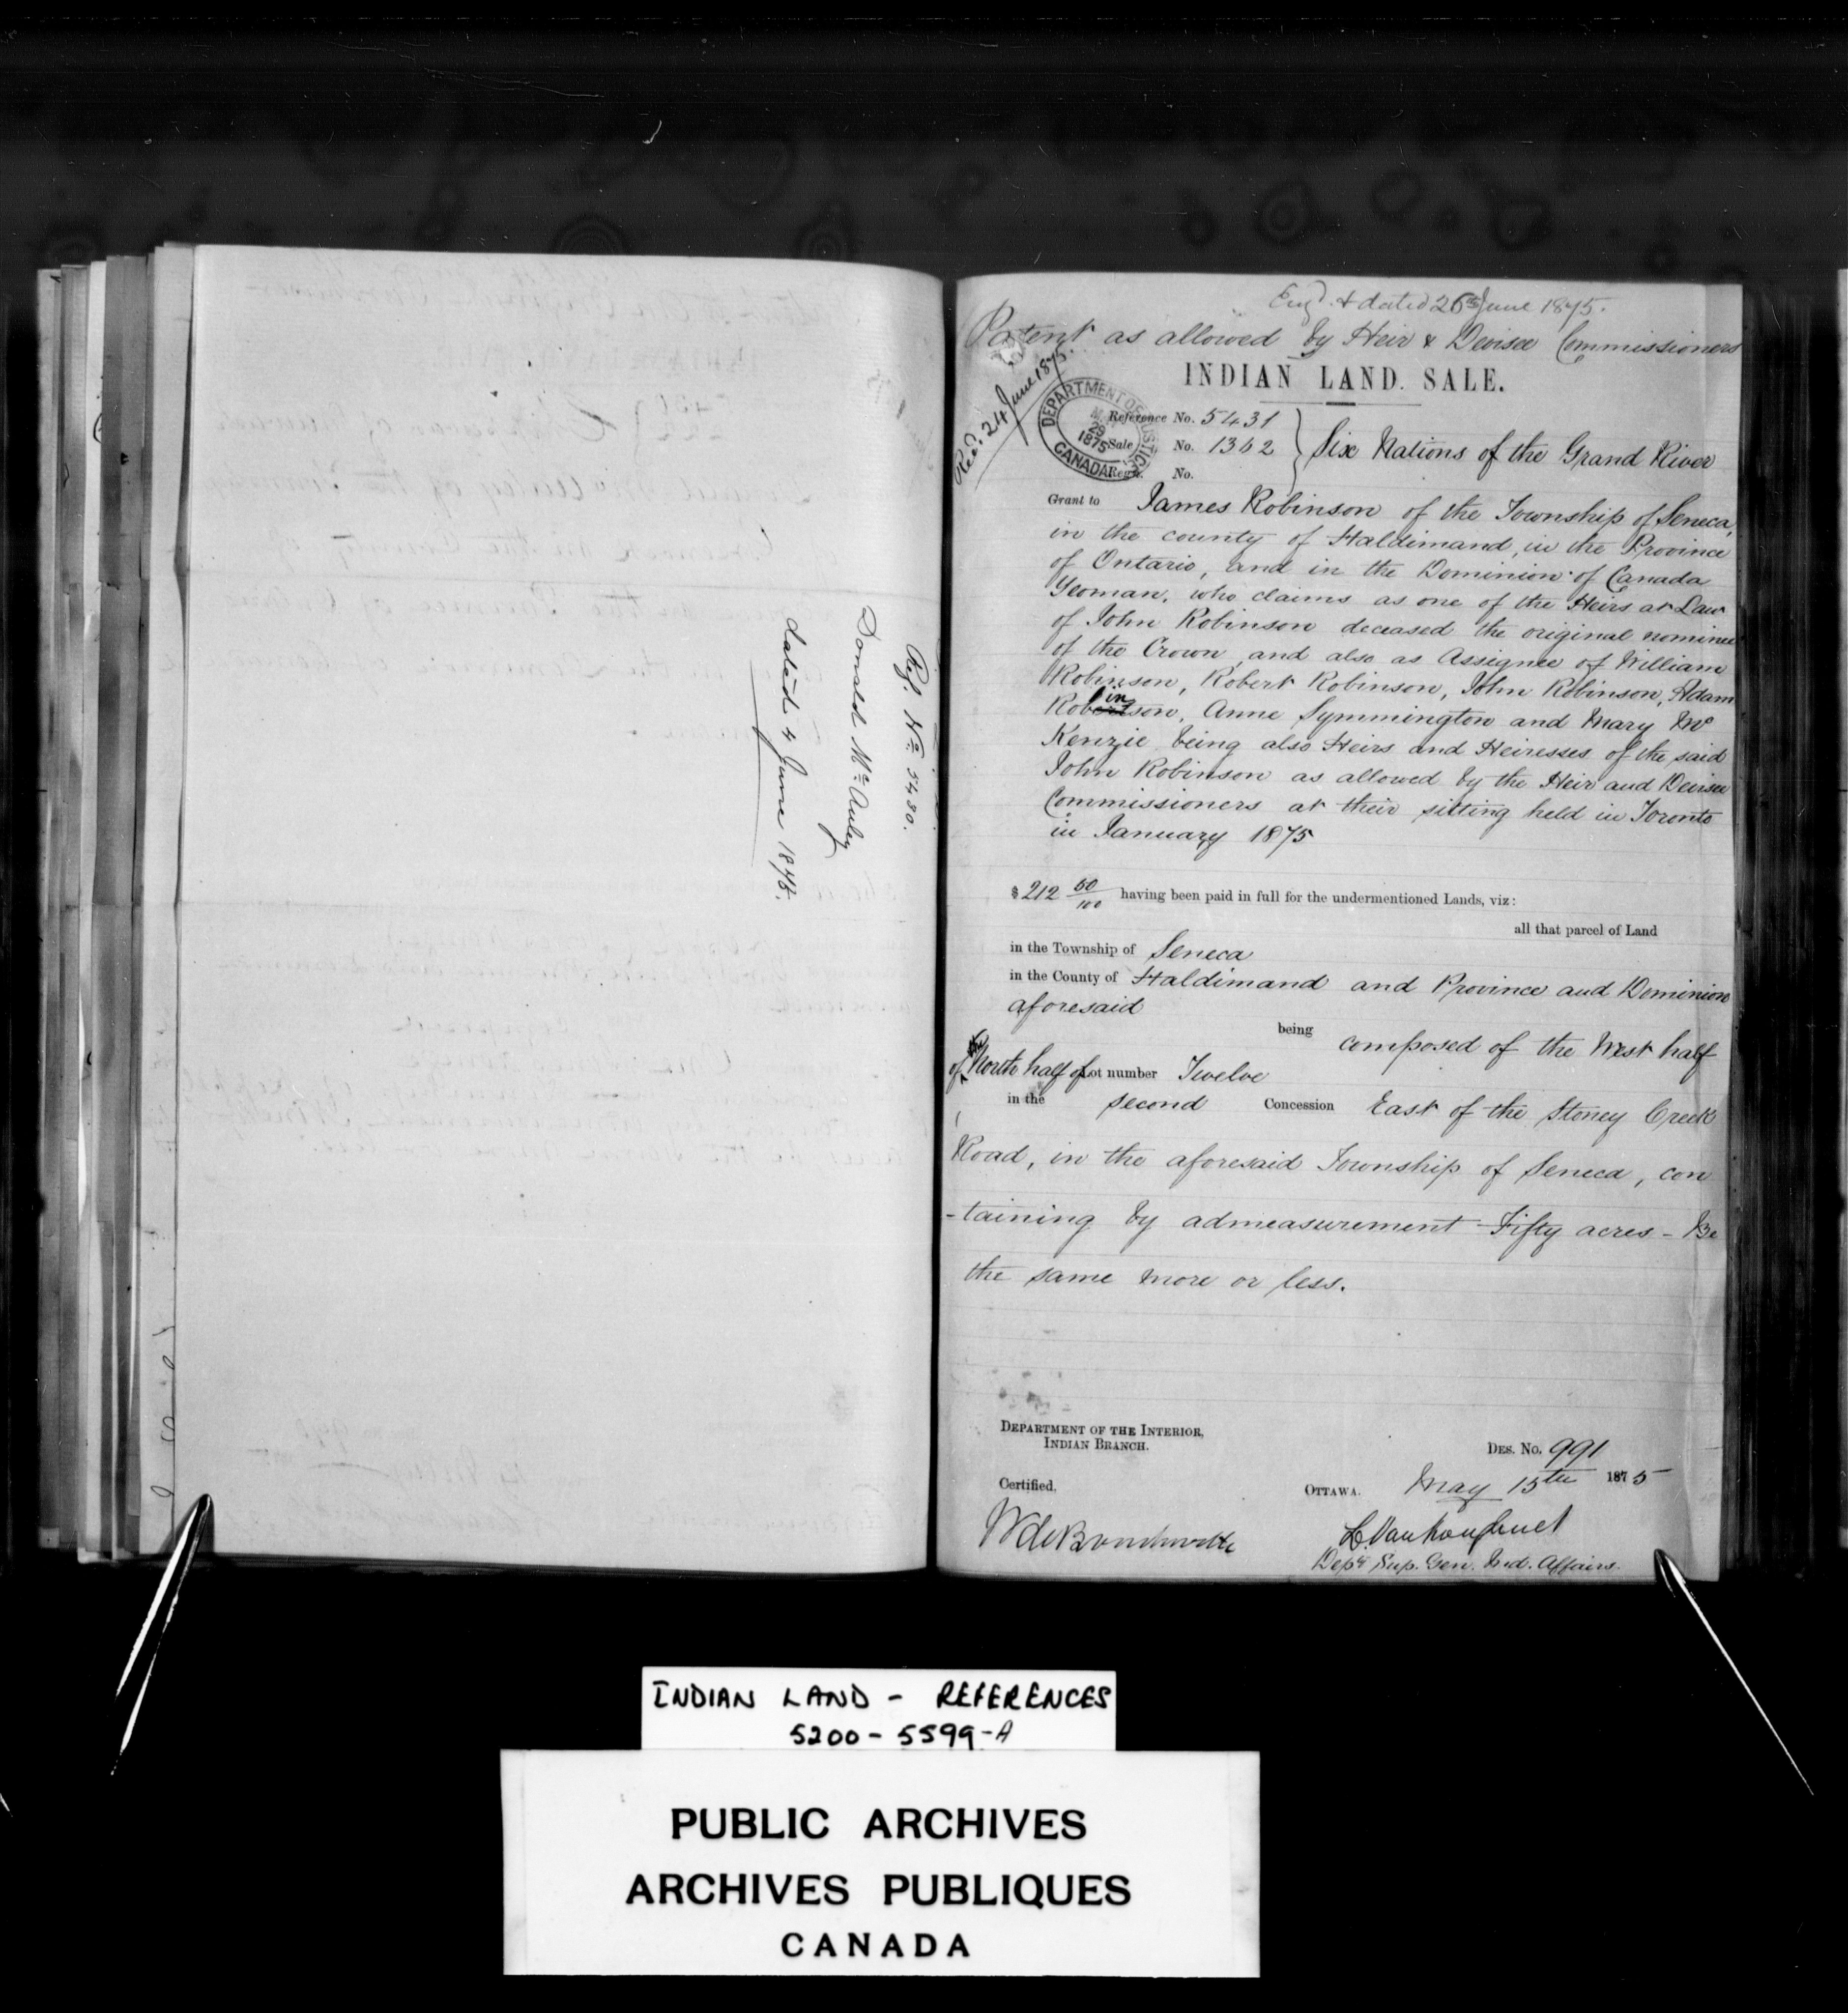 Ref. No. 5430.
Donald McAuley
dated 4 June 1875.
Eng'd. & dated 26th June 1875.
Patent as allowed by Heir & Devisee Commissioners
Rec'd. 24 June 1875.
INDIAN LAND. SALE.
DEPARTMENT OF JUSTICE
29
1875
CANADA
Reference No. 5431
Sale No. 1362
Regr. No.
Six Nations of the Grand River
Grant to James Robinson of the Township of Seneca,
in the county of Haldimand, in the Province
of Ontario, and in the Dominion of Canada
Yeoman, who claims as one of the Heirs at Law
of John Robinson deceased the original nominee
of the Crown, and also as Assignee of William
Robinson, Robert Robinson, John Robinson, Adam
Robinson, Anne Symmington and Mary Mc
Kenzie being also Heirs and Heiresses of the said
John Robinson as allowed by the Heir and Devisee
Commissioners at their sitting held in Toronto
in January 1875
$ 212 50/100 having been paid in full for the undermentioned Lands, viz:
all that parcel of Land
in the Township of Seneca
in the County of Haldimand and Province and Dominion
aforesaid
being composed of the West half
of the North half of Lot number Twelve
in the second Concession East of the Stoney Creek
Road, in the aforesaid Township of Seneca, con
-taining by admeasurement Fifty acres - Be
the same more or less.
DEPARTMENT OF THE INTERIOR,
INDIAN BRANCH.
DES. No. 991
Certified,
OTTAWA. May 15th 1875
L. Vankoughnet
Depy. Sup. Gen. Ind. Affairs.
INDIAN LAND - REFERENCES
5200 - 5599-A
PUBLIC ARCHIVES
ARCHIVES PUBLIQUES
CANADA